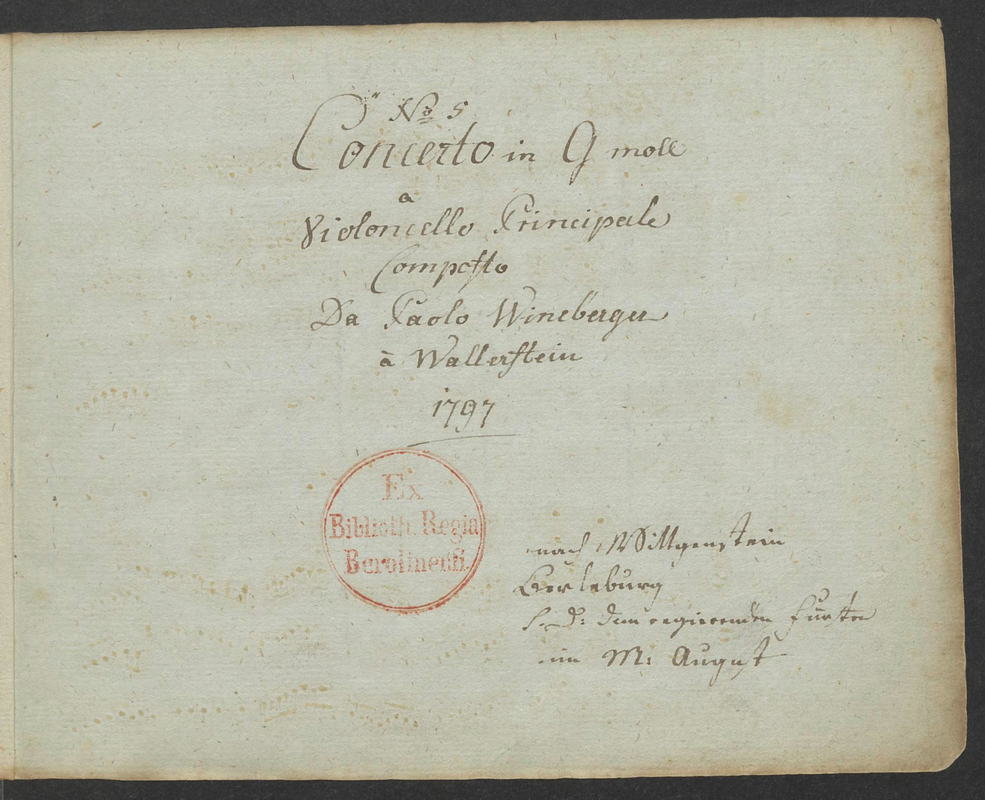 No 5
Concerto in G moll
a
Violoncello Principale
Composto
Da Paolo Wineberger
à Wallerstein
1797
Ex
Biblioth. Regia
Berolinensi.
nach Wittgenstein
Berleburg
S. D: dem regierenden Fürsten
im M: August